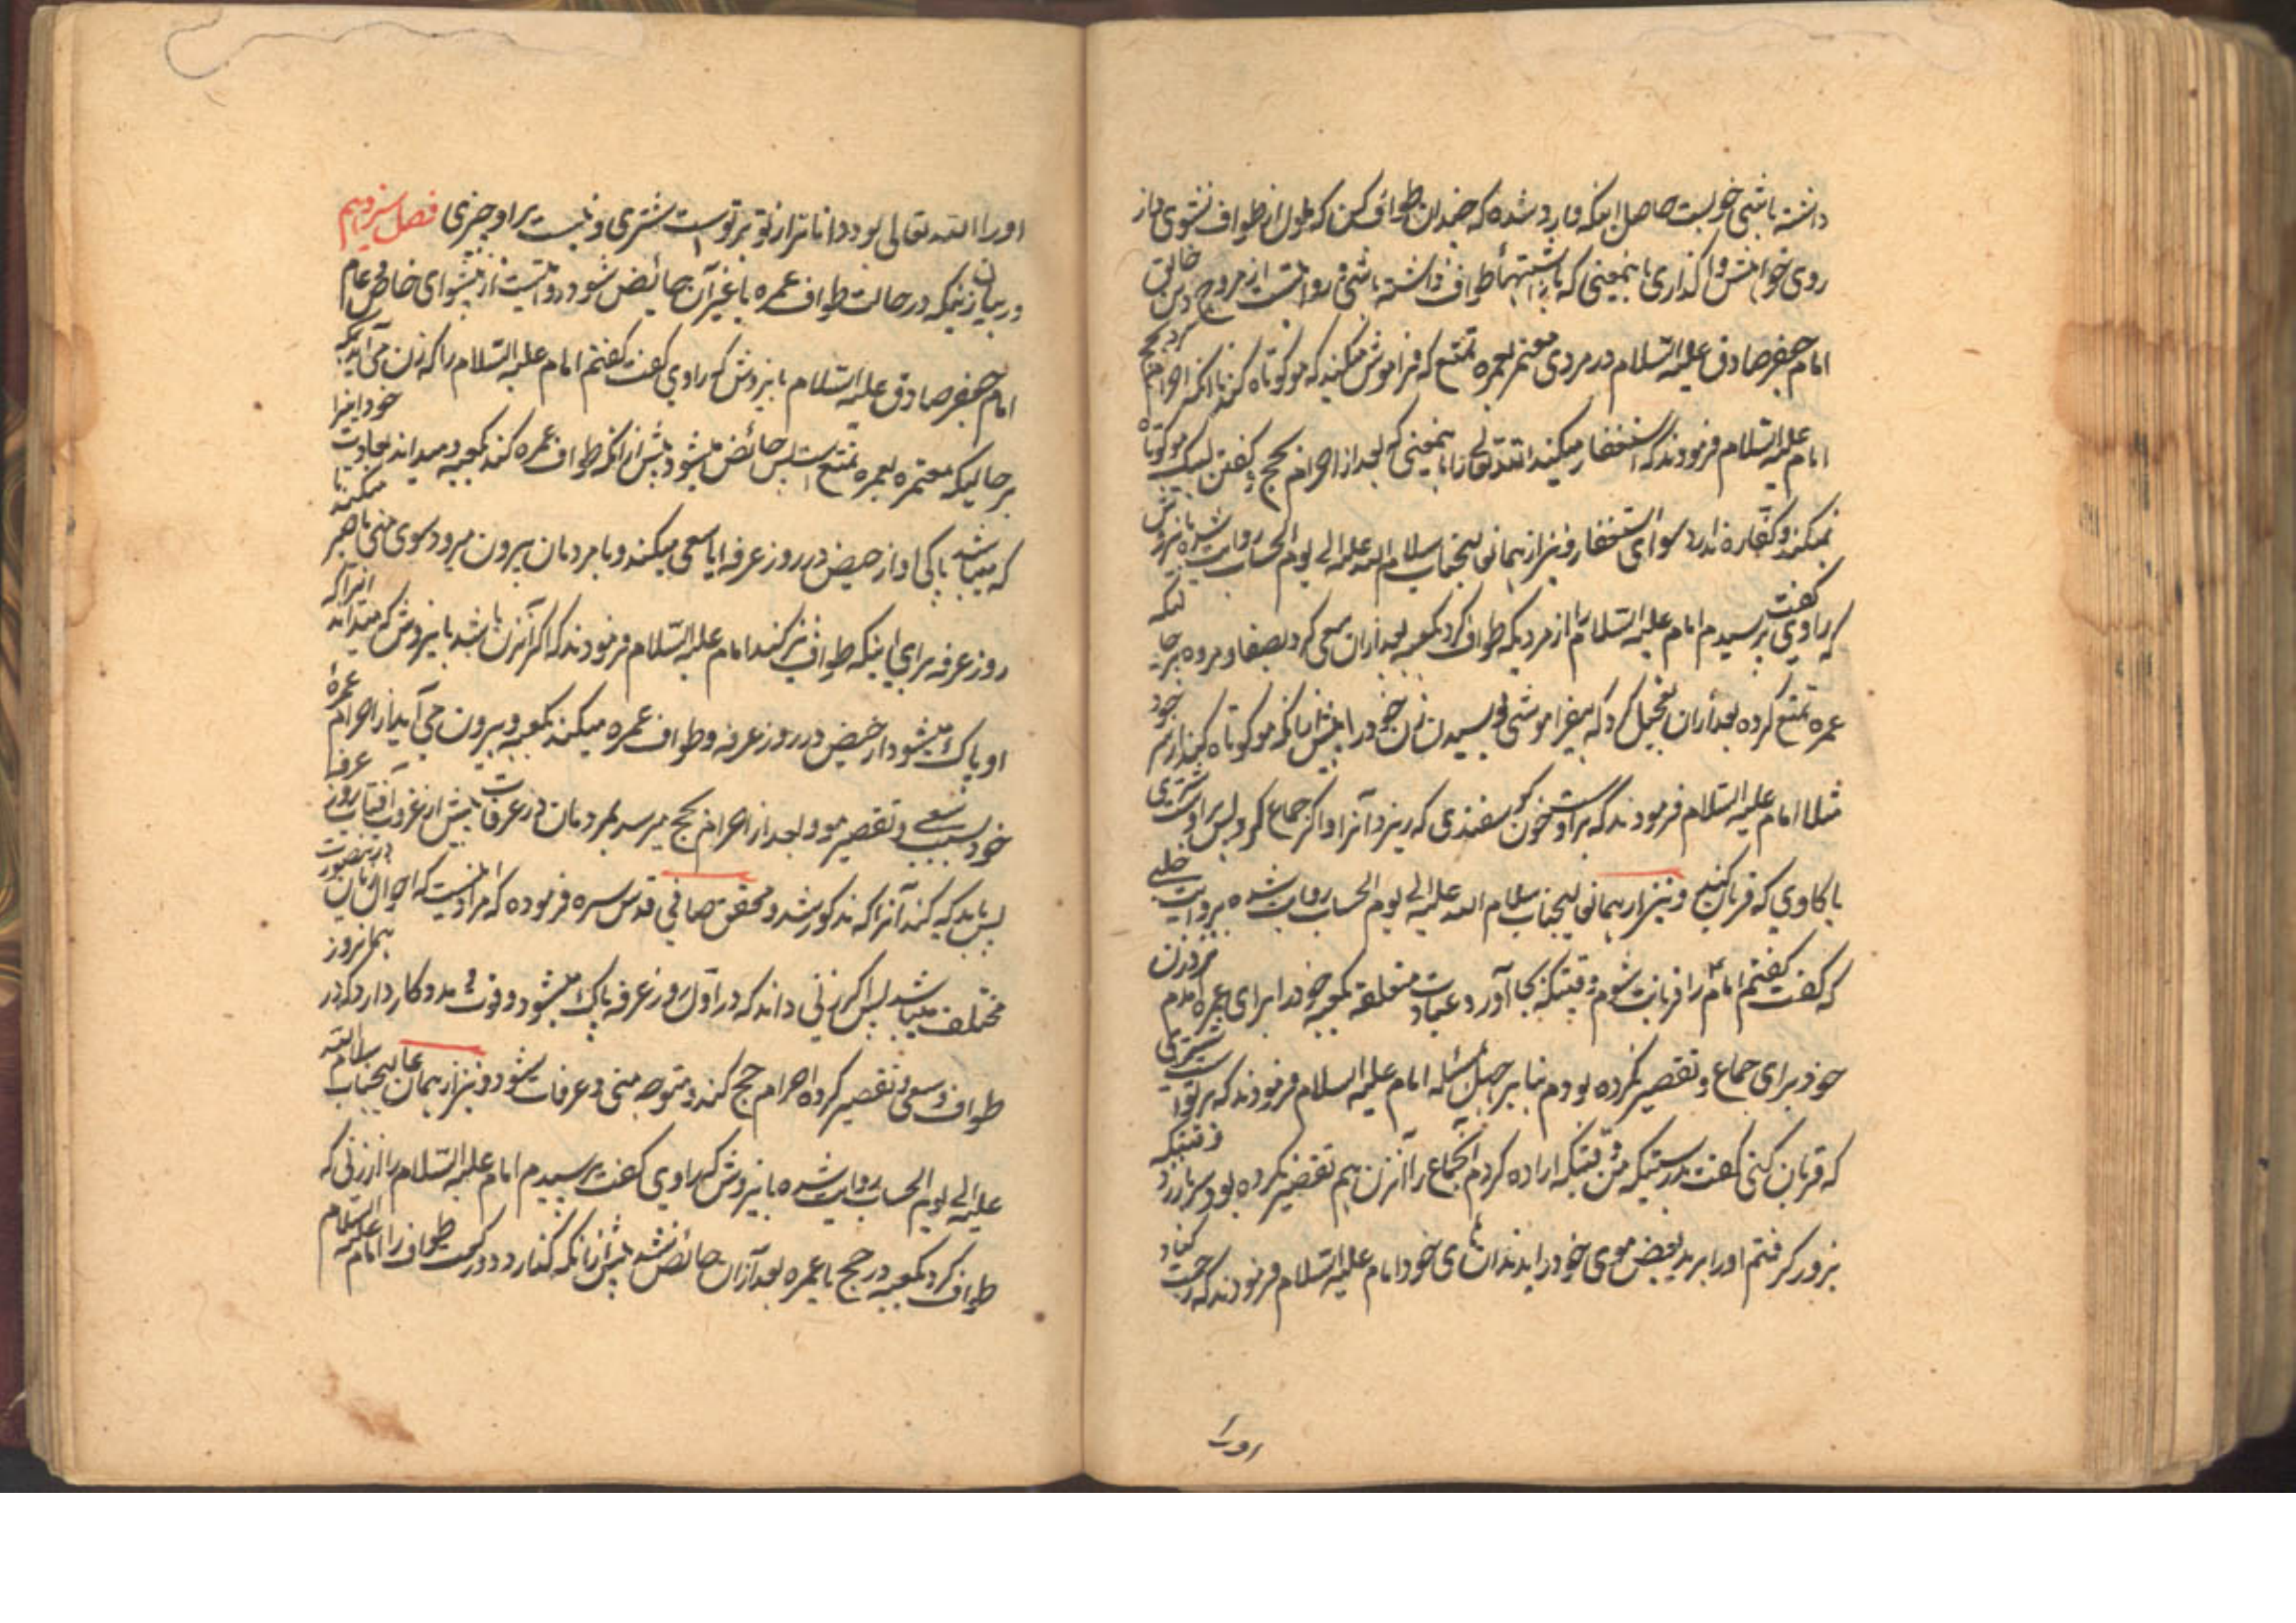 داشته باشی خوبست حاصل اینکه وارد شده که چندان طواف کن که ملول از طواف نشوی و باز
روی خواهش واگذاری باینمعنی که باز اشتهاء طواف داشته باشی و روایتست از مروج دین خالق
امام جعفر صادق علیه السّلام در مردی معتمر بعمره تمتع که فراموش میکند که مو کوتاه کند تا انکه احرام کرد بحج
امام علیه السّلام فرمودند که استغفار میکند الله تعالی را باینمعنی که بعد از احرام بحج و گفتن لبیک مو کوتاه
نمیکند و کفاره ندارد سوای استغفار و نیز از همانعالیجناب سلام الله علیه الی یوم الحساب روایت شده باینروش
که راوی گفت پرسیدم امام علیه السّلام را از مردیکه طواف کرد بکعبه بعد ازان سعی کرد بصفا و مروه بر حالیکه
عمره تمتع کرده بعد ازان تعجیل کرد که بفراموشی بوسیدن زن خود را پیش ازانکه مو کوتاه کند از سر خود
مثلا امام علیه السّلام فرمودند که بر اوست خون گوسفندی که ریزد آنرا و اگر جماع کرد پس بر اوست شتری
یا گاوی که قربان کند و نیز از همانعالیجناب سلام الله علیه الی یوم الحساب روایت شده بروایت حلبی
که گفت گفتم امام را قربانت شوم وقتیکه بجا آوردم عبادت متعلقه بکعبه خود را برای عمره آمدم نزد زن
خود برای جماع و تقصیر نکرده بودم بنا بر جهل مسئله امام علیه السلام فرمودند که بر تو است شتری
که قربان کنی گفت بدرستیکه من وقتیکه اراده کردم جماع را آنزن هم تقصیر نکرده بود و سر باز زد وقتیکه
بزور گرفتم او را برید بعض موی خود را بدندانهای خود امام علیه السّلام فرمودند که رحمت کناد
اورا
اورا الله تعالی بود دانا تر از تو بر توست شتری و نیست بر او چیزی فصل سیزدهم
در بیان زنیکه در حالت طواف عمره یا غیر آن حائض شود روایتست از پیشوای خاص و عام
امام جعفر صادق علیه السّلام باینروش که راوی گفت گفتم امام علیه السّلام را که زن می آید بمکه
بر حالیکه معتمره بعمره تمتع است پس حائض میشود پیش ازانکه طواف عمره کند بکعبه و میداند بعادت خود اینرا
که میباشد پاکی او از حیض در روز عرفه ایا سعی میکند و با مردمان بیرون میرود سوی منی یا صبر میکند تا
روز عرفه برای اینکه طواف نیز کند امام علیه السّلام فرمودند که اگر آنزن باشد باینروش که میداند اینرا که
او پاک میشود از حیض در روز عرفه و طواف عمره میکند بکعبه و بیرون می آید از احرام عمره
خود بسبب سعی و تقصیر مو و بعد از احرام بحج میرسد بمردمان در عرفات پیش از غروب آفتاب روز عرفه
پس باید که کند آنرا که مذکور شد و محقق صافی قدس سره فرموده که مراد اینست که احوال زنان درینصورت
مختلف میباشد پس اگر زنی داند که در اول روز عرفه پاک میشود و قوت مددکار دارد که در همانروز
طواف و سعی و تقصیر کرده احرام حج کند و متوجه منی و عرفات شود و نیز از همان عالیجناب سلام الله
علیه الی یوم الحساب روایت شده باینروش که راوی گفت پرسیدم امام علیه السّلام را از زنی که
طواف کرد بکعبه در حج یا عمره بعد ازان حائض شد پیش ازانکه گذارد دو رکعت طواف را امام علیه السّلام